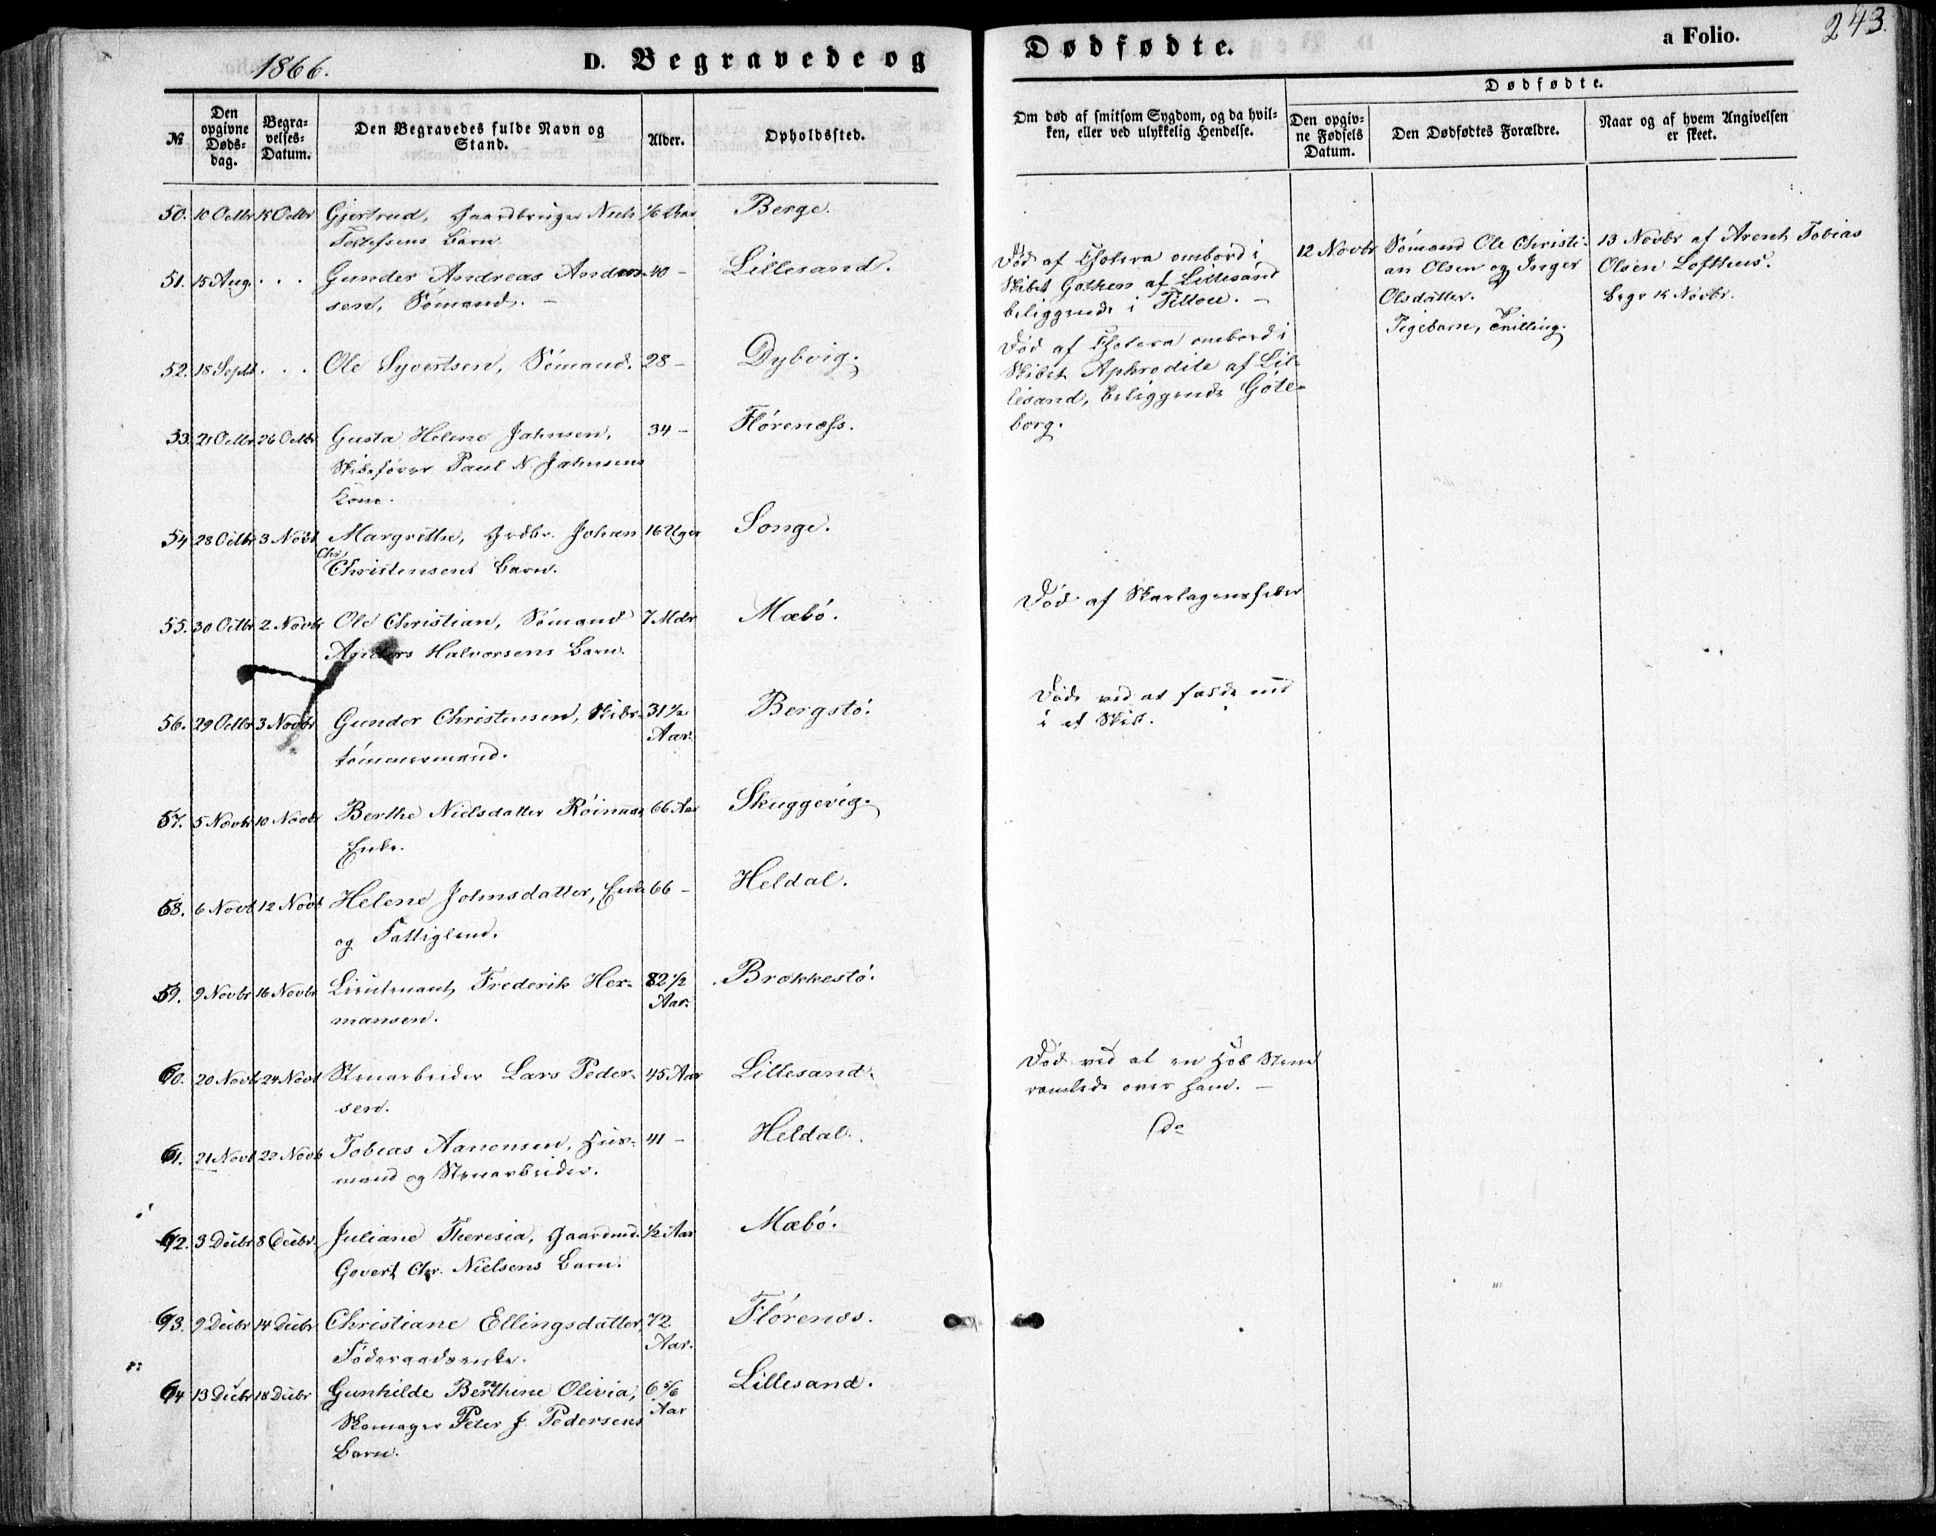 1866.
D. Begravede og
Dødfødte.
a Folio.
243.
№
Den opgivne Døds-dag.
Begra-velses-Datum.
Den Begravedes fulde Navn og Stand.
Alder.
Opholdssted.
Om død af smitsom Sygdom, og da hvil-ken, eller ved ulykkelig Hendelse.
Dødfødte.
Den opgiv-ne Fødsels Datum.
Den Dødfødtes Forældre.
Naar og af hvem Angivelsen er skeet.
50. 10 Octbr 15 Octbr Gjertrud, Gaardbruger Niels 1/6 Aar Berge.
Tellefsens Barn.
51. 15 Aug. . . . Gunder Andreas Ander- 40 – Lillesand.
sen, Sømand. –
Død af Cholera ombord i
Skibet Gothen af Lillesand
beliggende i Pillau. –
12 Novbr Sømand Ole Christi-
an Olsen og Inger
Olsdatter.
Pigebarn, Tvilling.
13 Novbr af Arent Tobias
Olsen Lofthus.
Begr 15 Novbr.
52. 18 Septb . . . Ole Syvertsen, Sømand. 28 – Dybvig.
Død af Cholera ombord i
Skibet Aphrodite af Lil-
lesand, beliggende Göte-
borg.
53. 21 Octbr 26 Octbr Gusta Helene Jahnsen, 34 – Flørenæss.
Skibsfører Paul N. Jahnsens
Kone.
54 28 Octbr 3 Novb Margrethe, Grdbr. Johan 16 Uger Songe.
Chr.
Christensens Barn.
55. 30 Octbr 2 Novbr Ole Christian, Sømand 7 Mdr Mæbø.
Anders Halvorsens Barn.
Død af Skarlagensfeber
56. 29 Octbr 3 Novbr Gunder Christensen, Skibs- 31 1/2 Aar. Bergstø.
tømmermand.
Døde ved at falde ned
i et Skib.
57. 5 Novbr 10 Novbr Berthe Nielsdatter 66 Aar Skuggevig.
Enke.
58. 6 Novb 12 Novb Helene Johnsdatter, Enke 66 – Heldal.
og Fattiglem.
59. 9 Novbr 16 Novbr Lieutenant Frederik Her- 82 1/2 Aar. Brækkestø.
mansen.
60. 20 Novb 24 Novb Stenarbeider Lars Peder- 45 Aar Lillesand.
sen.
Død ved at en Hob Stene
ramlede over ham. –
61. 21 Novb 29 Novb Tobias Aanonsen, Hus- 41 – Heldal.
mand og Stenarbeider.
do
62. 3 Decbr 8 Decbr. Juliane Theresia, Gaardmd. 1/2 Aar Mæbø.
Govert Chr. Nielsens Barn.
63. 9 Decbr 14 Decbr Christiane Ellingsdatter, 72 Aar. Flørenæs.
Føderaadsenke.
64 13 Decbr 18 Decbr Gunhilde Berthine Olivia, 6 5/6 Aar Lillesand.
Skomager Peter J. Pedersens
Barn.